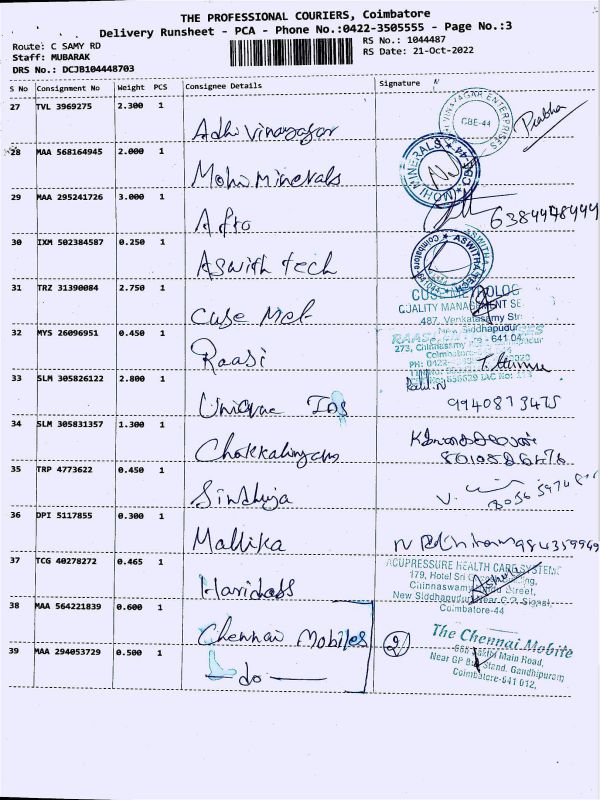 THE PROFESSIONAL COURIERS, Coimbatore
Delivery Runsheet - PCA - Phone No.:0422-3505555 - Page No.:3
Route: C SAMY RD
Staff: MUBARAK
DRS No.: DCJB104448703
RS No.: 1044487
RS Date: 21-Oct-2022
S No Consignment No Weight PCS Consignee Details Signature
27 TVL 3969275 2.300 1 Adhi Vinayagar
VINAYAGAR ENTERPRISES CBE-44 Prabha
28 MAA 568164945 2.000 1 Mohi Minerals
MOHI MINERALS CBE-44
29 MAA 295241726 3.000 1 Afro
30 IXM 502384587 0.250 1 Aswith tech
31 TRZ 31390084 2.750 1 Cuse Met-
QUALITY MANAGEMENT SE
487, Venkatasamy Str
New Siddhapudur
32 MYS 26096951 0.450 1 Raasi
33 SLM 305826122 2.800 1 Unique Ios
9940873475
34 SLM 305831357 1.300 1 Chokkalingam
35 TRP 4773622 0.450 1 Sindhuja
36 DPI 5117855 0.300 1 Mallika
37 TCG 40278272 0.465 1 Haridass
ACUPRESSURE HEALTH CARE SYSTEMS
179, Hotel Sri
Chinnaswamy Street,
New Siddhapudur Near G.P. Signal,
Coimbatore-44
38 MAA 564221839 0.600 1 Chennai Mobiles
2
39 MAA 294053729 0.500 1 do
The Chennai Mobile
Main Road,
Near GP Bus Stand, Gandhipuram
Coimbatore-641 012,